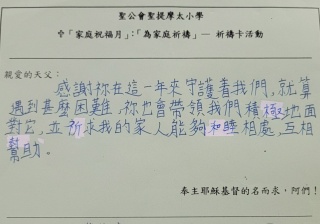 聖公會聖提摩太小學
✞「家庭祝福月」:「為家庭祈禱」— 祈禱卡活動
親愛的天父:
感謝祢在這一年來守護看我們,就算
遇到甚麼困難,祢也會帶領我們積極地面
對它,並祈求我的家人能夠和睦相處,互相
幫助。
奉主耶穌基督的名而求,阿們!